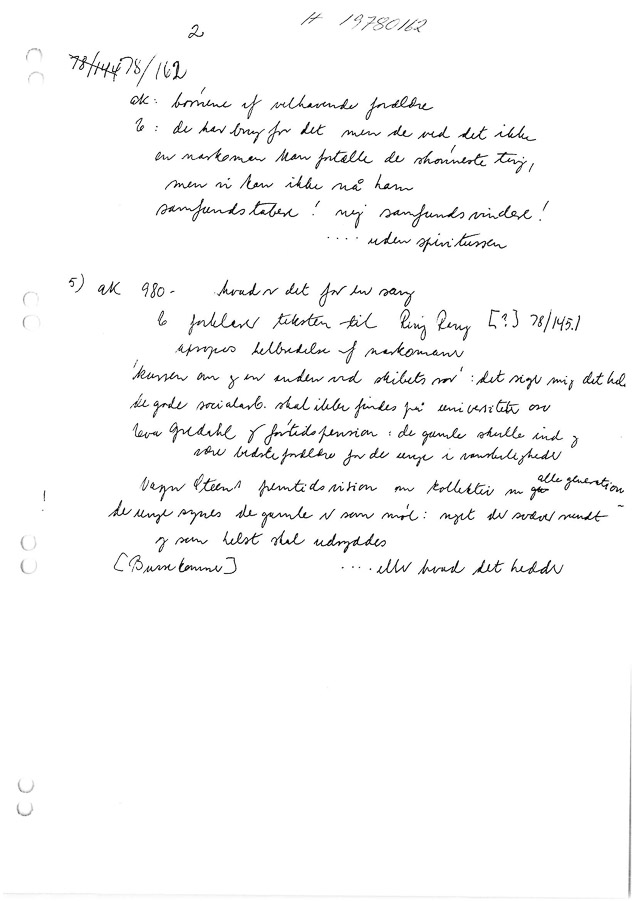 2
H 19780162
78/144 78/162
ak: børnene af velhavende forældre
b : de har brug for det men de ved det ikke
en narkoman kan fortælle de skønneste ting,
men vi kan ikke nå ham
samfundstabere ! nej samfundsvindere !
.... uden spiritussen
5) ak 980 - hvad er det for en sang
b forklarer teksten til Ring Reng [?] 78/145.1
apropos helbredelse af narkomaner
'kursen om og en anden ved skibets ror' : det siger mig det hele
de gode socialarb. skal ikke findes på universiteter osv
Eva Gredahl og førtidspension : de gamle skulle ind og
være bedsteforældre for de unge i vanskeligheder
Vagn Steens fremtidsvision om kollektiv m alle generation-
! de unge synes de gamle er som møl : noget der svæver rundt
og som helst skal udryddes
.... eller hvad det hedder